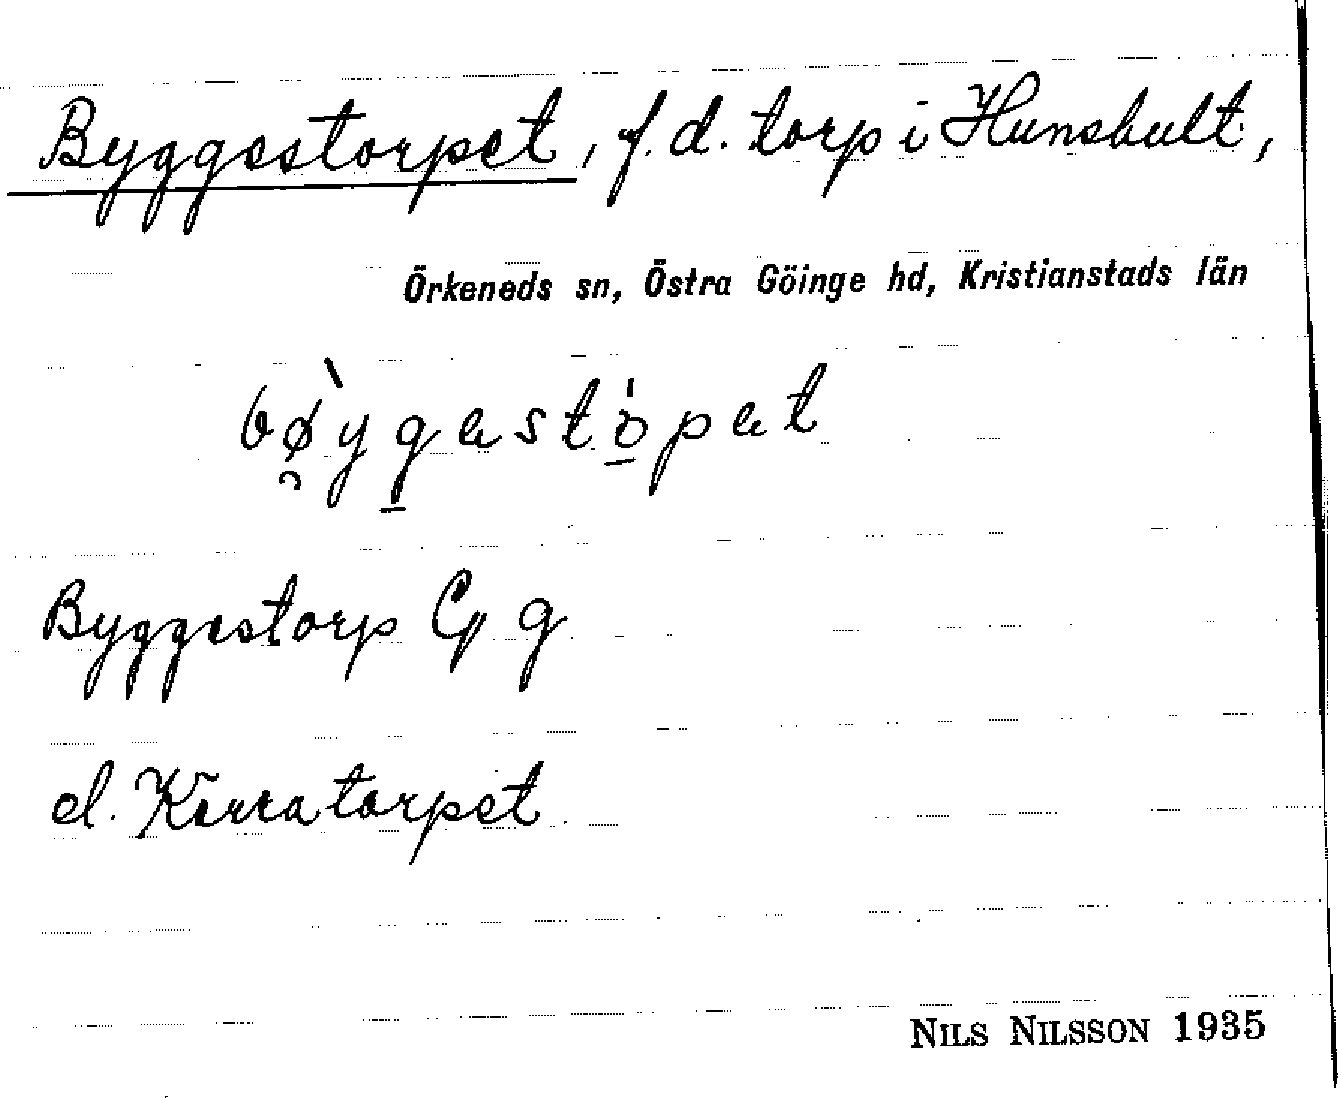 Byggestorpet, f.d. torp i Hunshult,
Örkeneds sn, Östra Göinge hd, Kristianstads län
Byggestorp G g
el. Körratorpet
NILS NILSSON 1935